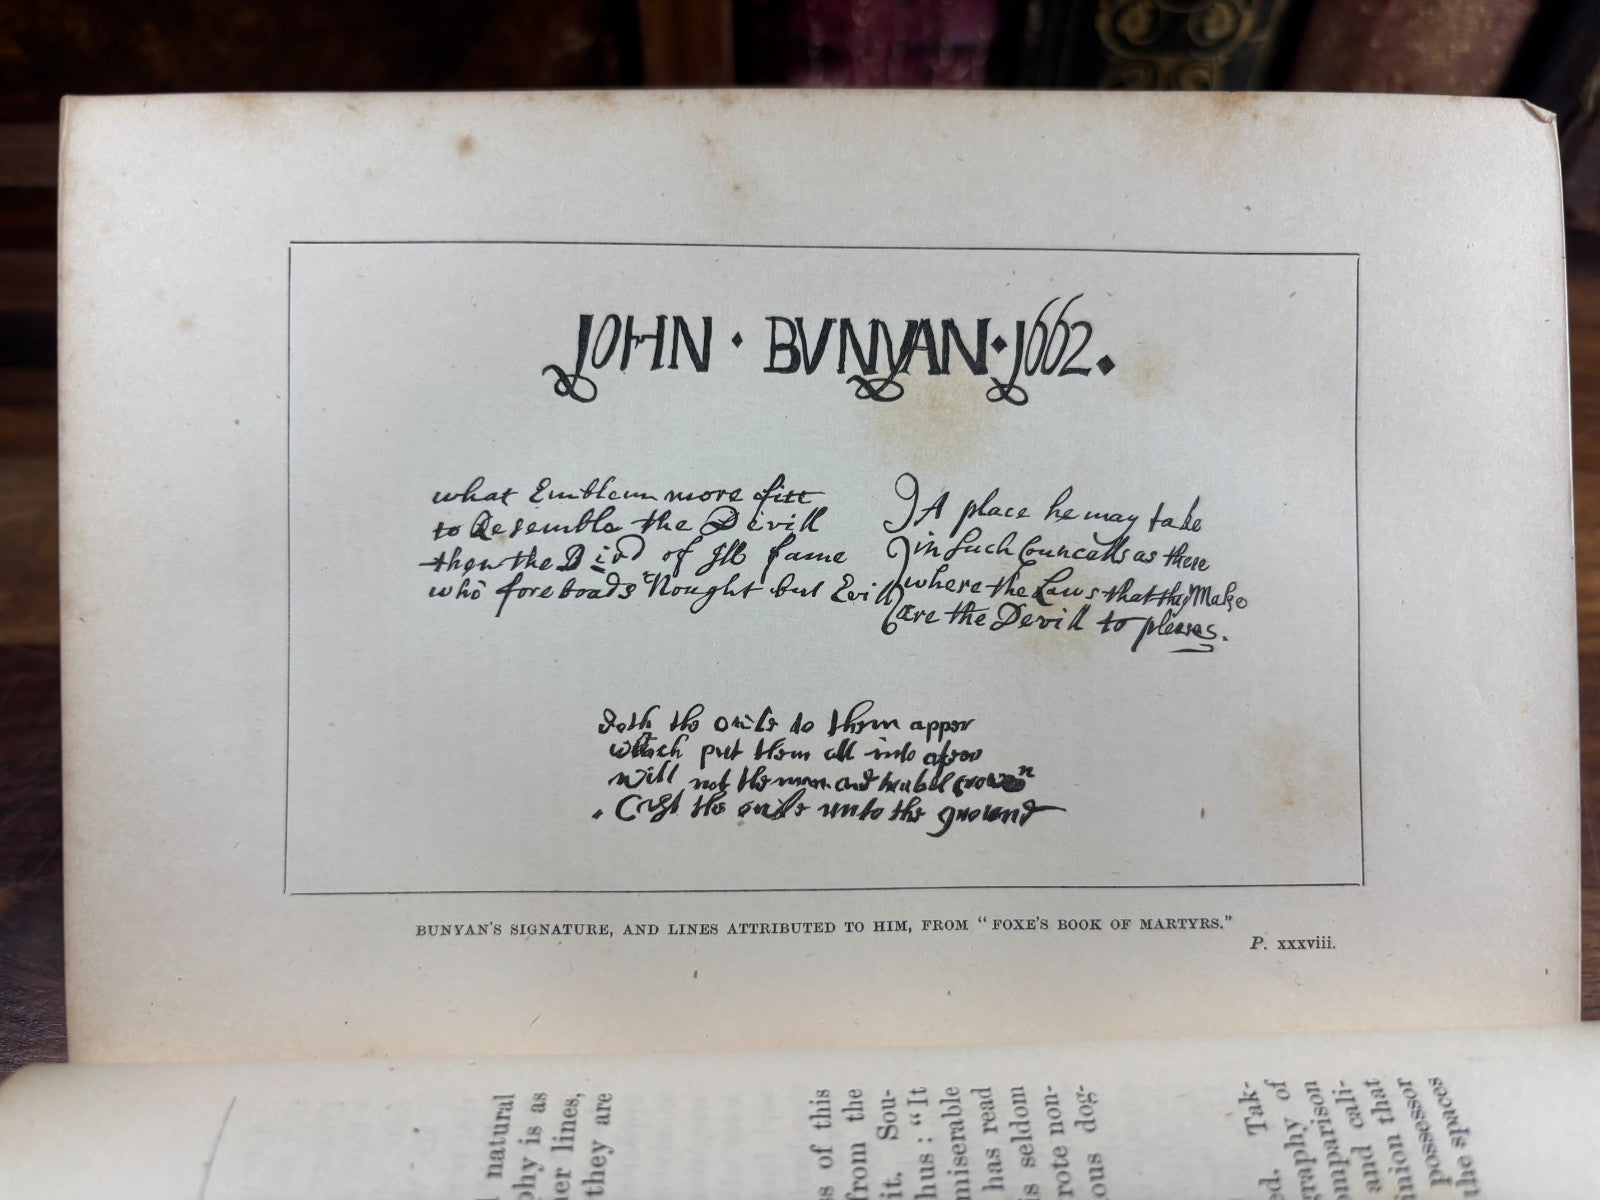 JOHN · BUNYAN · 1662.
what Emblem more fitt
to Resemble the Devill
then the Bird of Ill fame
who foreboads Nought but Evill
A place he may take
in such Councells as these
where the Laws that they Make
are the Devill to pleases.
doth the owle to them apper
which put them all into a fear
will not the man and trubel crown
Cast the owle unto the ground
BUNYAN'S SIGNATURE, AND LINES ATTRIBUTED TO HIM, FROM “FOXE'S BOOK OF MARTYRS.”
P. xxxviii.
natural
phy is as
ner lines,
they are
s of this
from the
it. Sou-
hus: “It
miserable
has read
is seldom
rote non-
ous dog-
ed. Tak-
graphy of
omparison
and cali-
inion that
possessor
the spaces